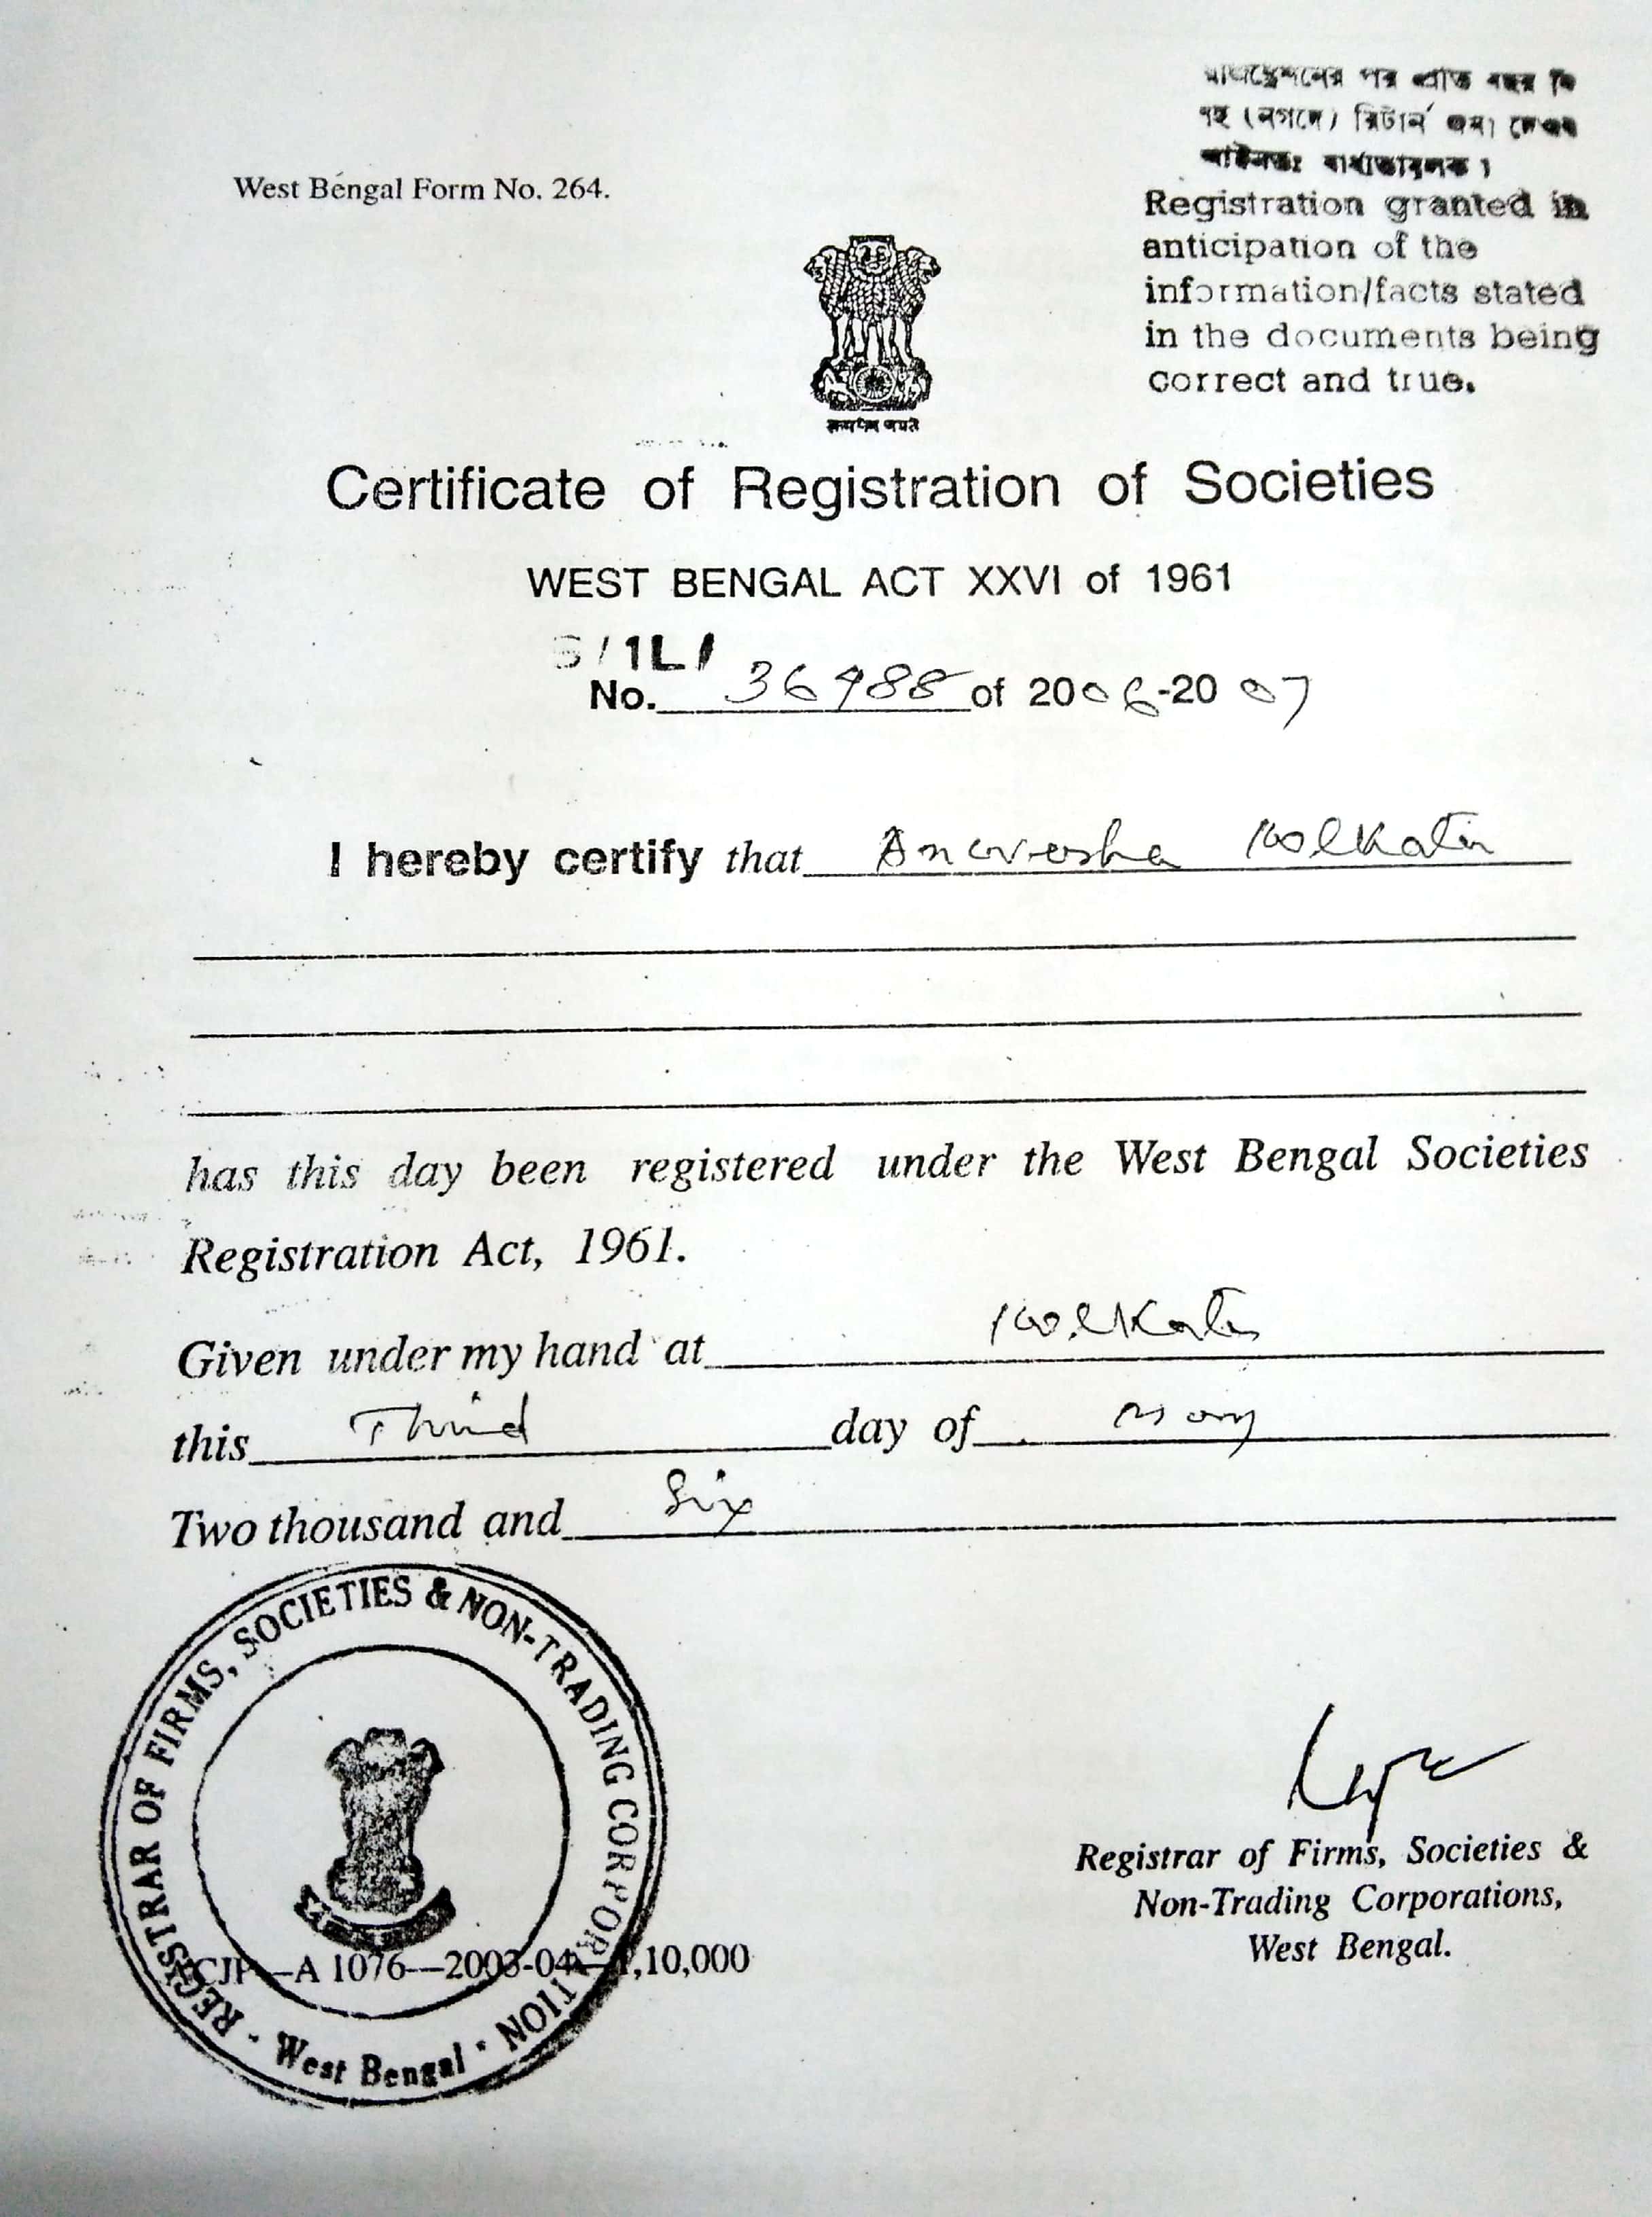 পর প্রতি বছর
রিটার্ন জমা দেওয়া
আইনতঃ বাধ্যতামূলক।
West Bengal Form No. 264.
Registration granted in
anticipation of the
information/facts stated
in the documents being
correct and true.
सत्यमेव जयते
Certificate of Registration of Societies
WEST BENGAL ACT XXVI of 1961
S/1L/
No. 36488 of 2006-2007
I hereby certify that Anwesha Kolkata
has this day been registered under the West Bengal Societies
Registration Act, 1961.
Given under my hand at Kolkata
this Third day of May
Two thousand and Six
REGISTRAR OF FIRMS, SOCIETIES & NON-TRADING CORPORATION
West Bengal
Registrar of Firms, Societies &
Non-Trading Corporations,
West Bengal.
A 1076—2003-04 10,000